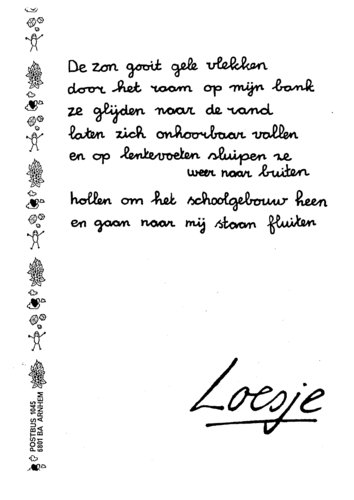 De zon gooit gele vlekken
door het raam op mijn bank
ze glijden naar de rand
laten zich onhoorbaar vallen
en op lentevoeten sluipen ze
weer naar buiten
hollen om het schoolgebouw heen
en gaan naar mij staan fluiten
Loesje
POSTBUS 1045
6801 BA ARNHEM